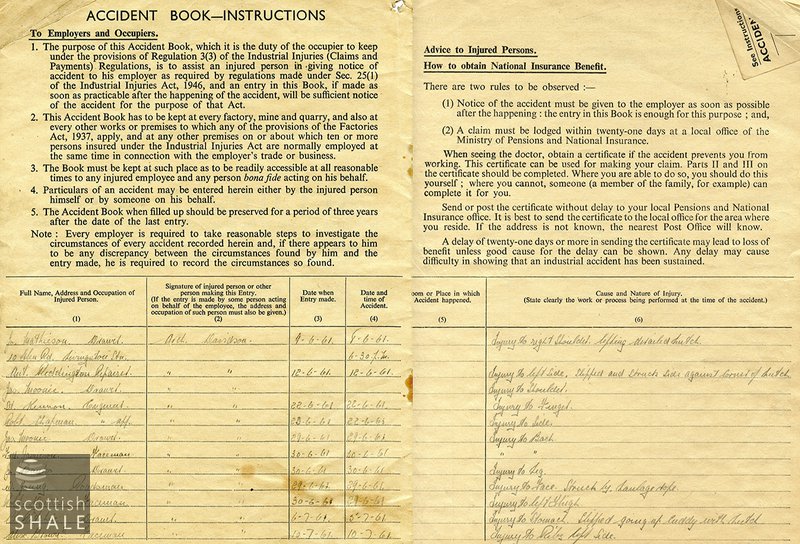 ACCIDENT BOOK—INSTRUCTIONS
To Employers and Occupiers.
1. The purpose of this Accident Book, which it is the duty of the occupier to keep
under the provisions of Regulation 3(3) of the Industrial Injuries (Claims and
Payments) Regulations, is to assist an injured person in giving notice of
accident to his employer as required by regulations made under Sec. 25(1)
of the Industrial Injuries Act, 1946, and an entry in this Book, if made as
soon as practicable after the happening of the accident, will be sufficient
notice of the accident for the purpose of that Act.
2. This Accident Book has to be kept at every factory, mine and quarry, and also at
every other works or premises to which any of the provisions of the Factories
Act, 1937, apply, and at any other premises on or about which ten or more
persons insured under the Industrial Injuries Act are normally employed at
the same time in connection with the employer's trade or business.
3. The Book must be kept at such place as to be readily accessible at all reasonable
times to any injured employee and any person bona fide acting on his behalf.
4. Particulars of an accident may be entered herein either by the injured person
himself or by someone on his behalf.
5. The Accident Book when filled up should be preserved for a period of three years
after the date of the last entry.
Note : Every employer is required to take reasonable steps to investigate the
circumstances of every accident recorded herein and, if there appears to him
to be any discrepancy between the circumstances found by him and the
entry made, he is required to record the circumstances so found.
See Instructions
ACCIDEN
Advice to Injured Persons.
How to obtain National Insurance Benefit.
There are two rules to be observed :—
(1) Notice of the accident must be given to the employer as soon as possible
after the happening : the entry in this Book is enough for this purpose ; and,
(2) A claim must be lodged within twenty-one days at a local office of the
Ministry of Pensions and National Insurance.
When seeing the doctor, obtain a certificate if the accident prevents you from
working. This certificate can be used for making your claim. Parts II and III on
the certificate should be completed. Where you are able to do so, you should do this
yourself ; where you cannot, someone (a member of the family, for example) can
complete it for you.
Send or post the certificate without delay to your local Pensions and National
Insurance office. It is best to send the certificate to the local office for the area where
you reside. If the address is not known, the nearest Post Office will know.
A delay of twenty-one days or more in sending the certificate may lead to loss of
benefit unless good cause for the delay can be shown. Any delay may cause
difficulty in showing that an industrial accident has been sustained.
Full Name, Address and Occupation of
Injured Person.
(1)
Signature of injured person or other
person making this Entry.
(If the entry is made by some person acting
on behalf of the employee, the address and
occupation of such person must also be given.)
(2)
Date when
Entry made.
(3)
Date and
time of
Accident.
(4)
oom or Place in which
Accident happened.
(5)
Cause and Nature of Injury.
(State clearly the work or process being performed at the time of the accident.)
(6)
Mathieson Drawer Davidson. 9-6-61. 8-6-61. Injury to right shoulder lifting derailed hutch
Livingston Stn. 6-30
Weddington Repairer " " 12-6-61. 12-6-61. Injury to left side, slipped and struck side against corner of hutch
Drawer " " Injury to Shoulder.
" " 22-6-61 22-6-61. Injury to Finger.
Robt. Chapman. " " 23-6-61 22-6-61 Injury to Side.
Drawer " " 29-6-61 29-6-61. Injury to Back
Faceman " " 30-6-61 30-6-61 " "
Drawer " " 30-6-61 30-6-61. Injury to Leg.
Young " " 29-6-61 29-6-61. Injury to Face. Struck by haulage rope.
" " 30-6-61 29-6-61 Injury to left Thigh
" " 6-7-61. 5-7-61. Injury to Stomach. Slipped going up cuddy with hutch
" " 12-7-61. 10-7-61. Injury to Ribs left side.
scottish
SHALE